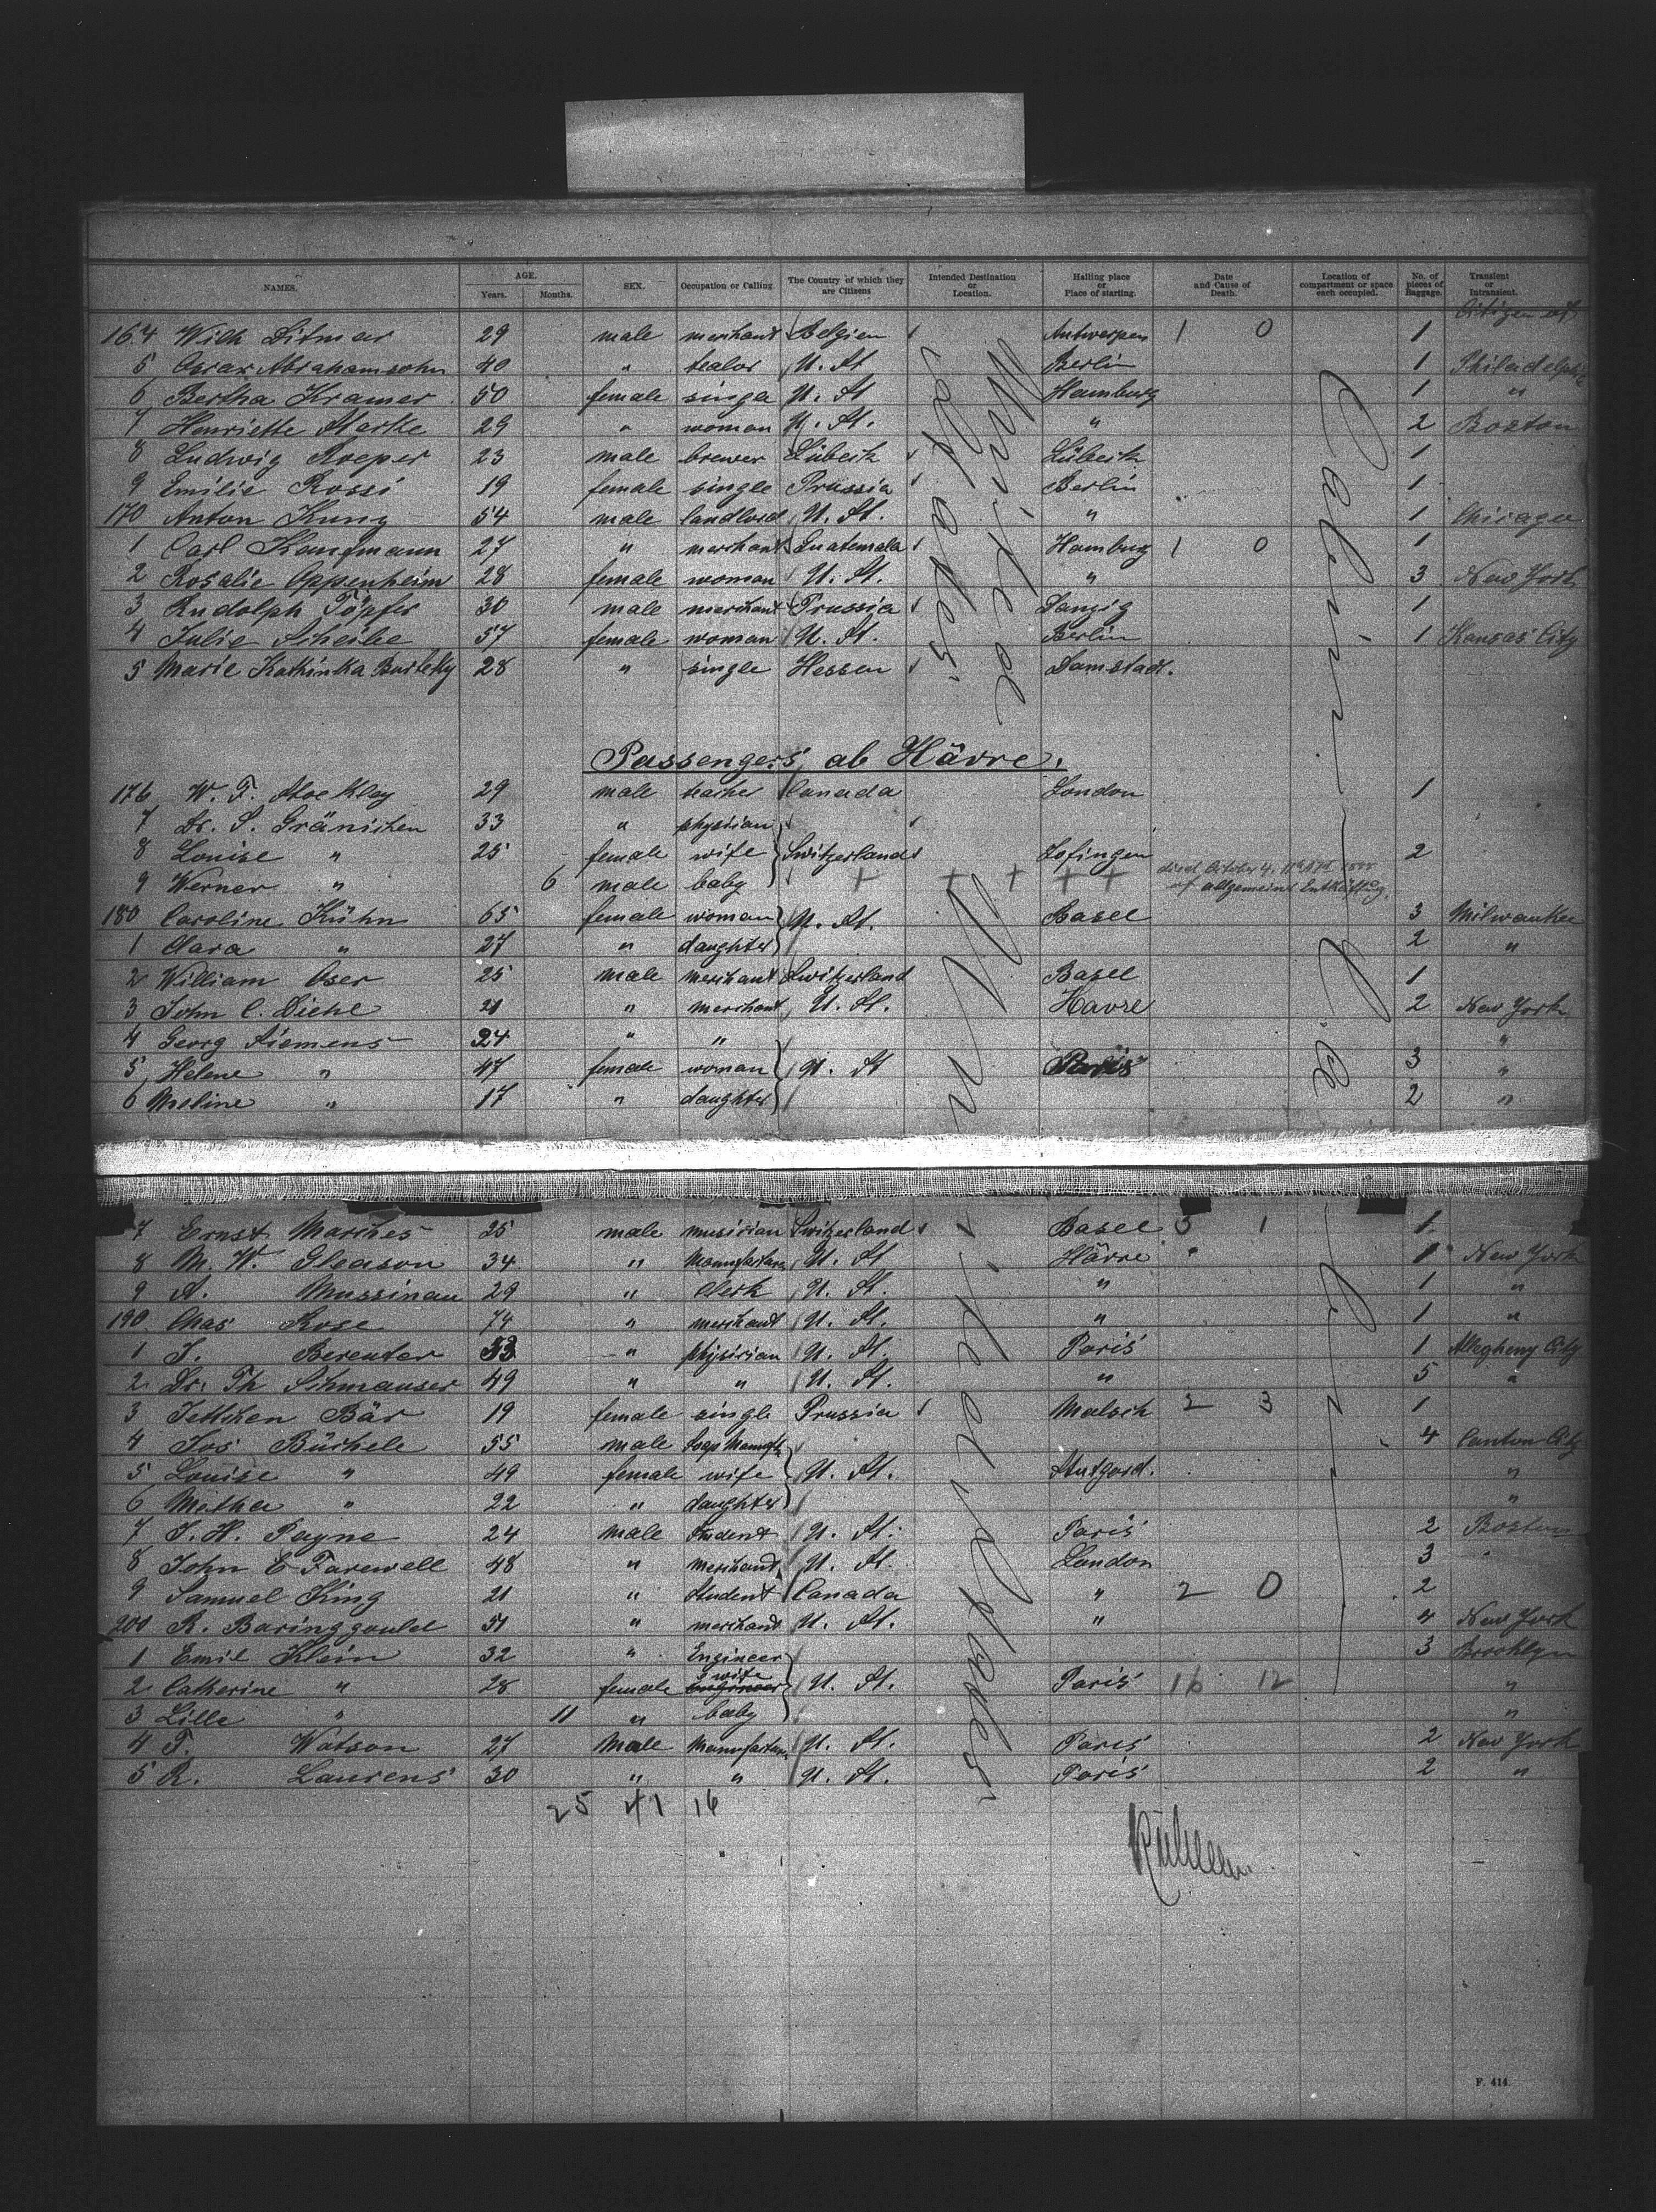 NAMES. AGE. Years. Months. SEX. Occupation or Calling. The Country of which they are Citizens Intended Destination or Location. Halting place or Place of starting. Date and Cause of Death. Location of compartment or space each occupied. No. of pieces of Baggage. Transient or Intransient.
Citizen of
164 Wilh Ditmar 29 male merchant Belgien Antwerpen 1 0 1
5 Oscar Abrahamsohn 40 " U. St Berlin 1 Philadelphia
6 Bertha Kramer 50 female single U. St Hamburg 1 "
7 Henriette Starke 29 " woman U. St. " 2 Boston
8 Ludwig Roeper 23 male brewer Lübeck Lübeck 1
9 Emilie Rossi 19 female single Prussia Berlin 1
170 Anton Kung 54 male landlord U. St. " 1 Chicago
1 Carl Kaufmann 27 " merchant Guatemala Hamburg 1 0 1
2 Rosalie Oppenheim 28 female woman U. St. " 3 New York
3 Rudolph Töpfer 30 male merchant Prussia Danzig 1
4 Julie Scheibe 57 female woman U. St. Berlin 1 Kansas City
5 Marie Kathinka 28 " single Hessen Damstadt.
United States
Cabin
Passengers ab Hâvre.
176 W. F. 29 male teacher Canada London 1
7 Dr. S. Gränichen 33 " physician
8 Louise " 25 female wife Switzerland Zofingen 2
9 Werner " 6 male baby + + + + + died October 4.
allgemeine Entkräftung.
180 Caroline Kühn 65 female woman U. St. Basel 3 Milwaukee
1 Clara " 27 " daughter 2 "
2 William Oser 25 male merchant Switzerland Basel 1
3 John C. Diehl 21 " merchant U. St. Havre 2 New York
4 Georg Siemens 24 " " "
5 Helene " 47 female woman U. St Paris 3 "
6 Meline " 17 " daughter 2 "
7 Ernst Marches 25 male musician Switzerland Basel 3 1 1
8 M. W. Gleason 34 " U. St Hâvre 1 New York
9 A. Mussinan 29 " Clerk U. St. " 1 "
190 Chas Rose 74 " merchant U. St. " 1 "
1 J. Bereuter 33 " physician U. St. Paris 1 Allegheny City
2 Dr. Th Schmauser 49 " " U. St. " 5 "
3 Jettchen Bär 19 female single Prussia Malsch 2 3 1
4 Jos Büchele 55 male 4 Canton City
5 Louise " 49 female wife U. St. Stutgard. "
6 " 22 " daughter "
7 J. H. Payne 24 male student U. St. Paris 2 Boston
8 John E Farewell 48 " merchant U. St. London 3
9 Samuel King 21 " student Canada " 2 0 2
200 R. Baringgould 51 " merchant U. St. " 4 New York
1 Emil Klein 32 " Engineer 3 Brooklyn
2 Catherine " 28 female wife U. St. Paris 16 12 "
3 Lille " 11 " baby "
4 F. Watson 27 Male U. St. Paris 2 New York
5 R. Laurens 30 " " U. St. Paris 2 "
United States
Cabin
25 41 16
F. 414.